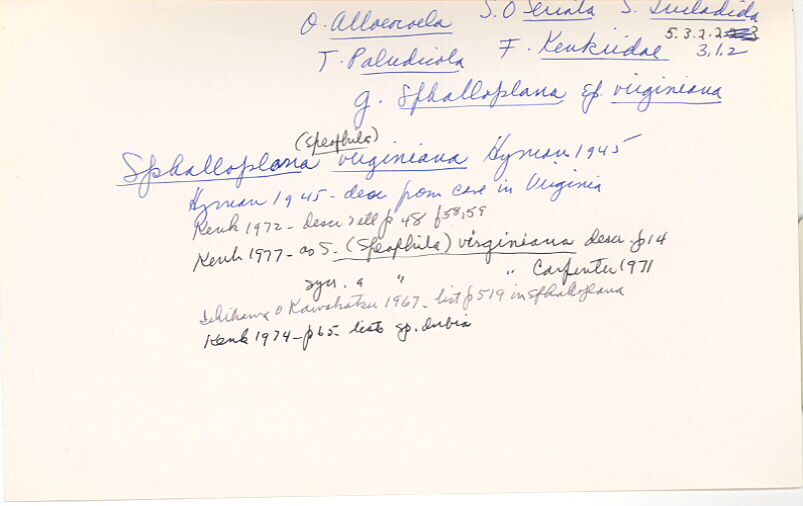 O. Alloeocoela S. O Seriata S. Tricladida
5.3.2.2
T. Paludicola F. Kenkiidae 3.1.2
g. Sphalloplana sp. virginiana
(Speophila)
Sphalloplana virginiana Hyman 1945
Hyman 1945 - descr from cave in Virginia
Kenk 1972 - descr p 48 f 58,59
Kenk 1977 - as S. (Speophila) virginiana descr p14
syn. " " Carpenter 1971
Ichikawa & Kawakatsu 1967 - list p 519 in Sphalloplana
Kenk 1974 - p65 - lists sp. dubia